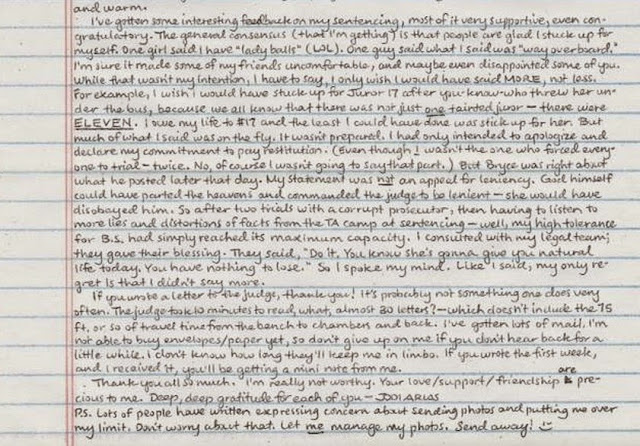 and warm.
I've gotten some interesting feedback on my sentencing, most of it very supportive, even con-
gratulatory. The general consensus (that I'm getting) is that people are glad I stuck up for
myself. One girl said I have "lady balls" (LOL). One guy said what I said was "way overboard."
I'm sure it made some of my friends uncomfortable, and maybe even disappointed some of you.
While that wasn't my intention, I have to say, I only wish I would have said MORE, not less.
For example, I wish I would have stuck up for Juror 17 after you-know-who threw her un-
der the bus, because we all know that there was not just one tainted juror — there were
ELEVEN. I owe my life to #17 and the least I could have done was stick up for her. But
much of what I said was on the fly. It wasn't prepared. I had only intended to apologize and
declare my commitment to pay restitution. (Even though I wasn't the one who forced every-
one to trial – twice. No, of course I wasn't going to say that part.) But Bryce was right about
what he posted later that day. My statement was not an appeal for leniency. God himself
could have parted the heavens and commanded the judge to be lenient – she would have
disobeyed him. So after two trials with a corrupt prosecutor, then having to listen to
more lies and distortions of facts from the TA camp at sentencing – well, my high tolerance
for B.S. had simply reached its maximum capacity. I consulted with my legal team;
they gave their blessing. They said, "Do it. You know she's gonna give you natural
life today. You have nothing to lose." So I spoke my mind. Like I said, my only re-
gret is that I didn't say more.
If you wrote a letter to the judge, thank you! It's probably not something one does very
often. The judge took 10 minutes to read, what, almost 30 letters? – which doesn't include the 75
ft. or so of travel time from the bench to chambers and back. I've gotten lots of mail. I'm
not able to buy envelopes/paper yet, so don't give up on me if you don't hear back for a
little while. I don't know how long they'll keep me in limbo. If you wrote the first week,
and I received it, you'll be getting a mini note from me.
Thank you all so much. I'm really not worthy. Your love/support/friendship are pre-
cious to me. Deep, deep gratitude for each of you – JODI ARIAS
P.S. Lots of people have written expressing concern about sending photos and putting me over
my limit. Don't worry about that. Let me manage my photos. Send away! :)